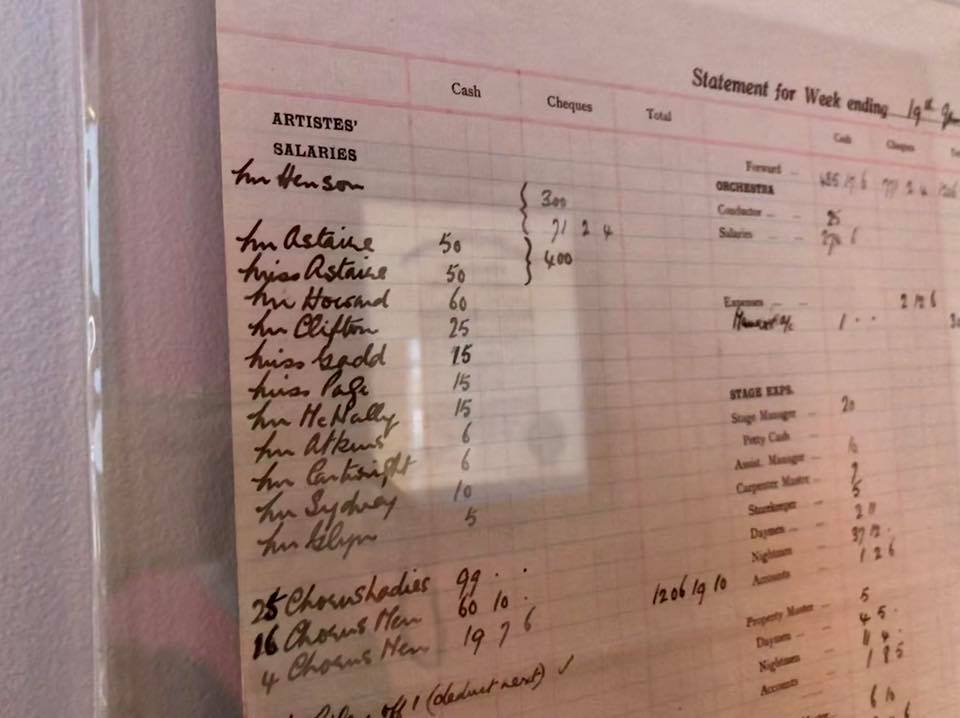 Statement for Week ending 19th
Cash Cheques Total
Cash Cheques
ARTISTES'
SALARIES
Mr Henson { 300
{ 71 2 4
Mr Astaire 50 } 400
Miss Astaire 50
Mr Howard 60
Mr Clifton 25
Miss Gadd 15
Miss Page 15
Mr McNally 15
Mr Atkins 6
Mr Cartwright 6
Mr Sydney 10
Mr Glyn 5
25 Chorus Ladies 99 . .
16 Chorus Men 60 10 .
4 Chorus Men 19 7 6
1206 19 10
off 1 (deduct next) ✓
Forward 485 17 6
ORCHESTRA
Conductor 25
Salaries
Expenses 2 12 6
1 . .
STAGE EXPS.
Stage Manager 20
Petty Cash
Assist. Manager
Carpenter Master
Storekeeper 5
Daymen
Nightmen
Accounts 1 2 6
Property Master 5
Daymen 4 5
Nightmen
Accounts